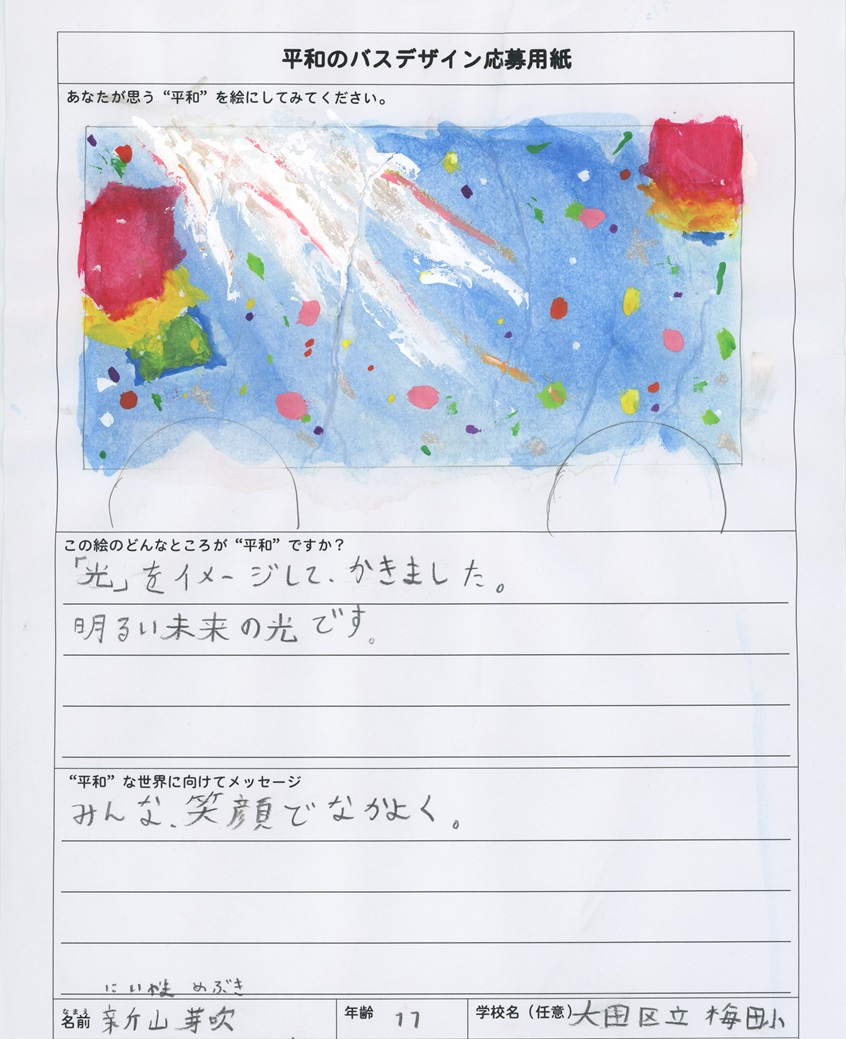 平和のバスデザイン応募用紙
あなたが思う“平和”を絵にしてみてください。
この絵のどんなところが“平和”ですか？
「光」をイメージして、かきました。
明るい未来の光です。
“平和”な世界に向けてメッセージ
みんな、笑顔でなかよく。
にいやま めぶき
なまえ
名前 新山 芽吹 年齢 11 学校名（任意） 大田区立 梅田小